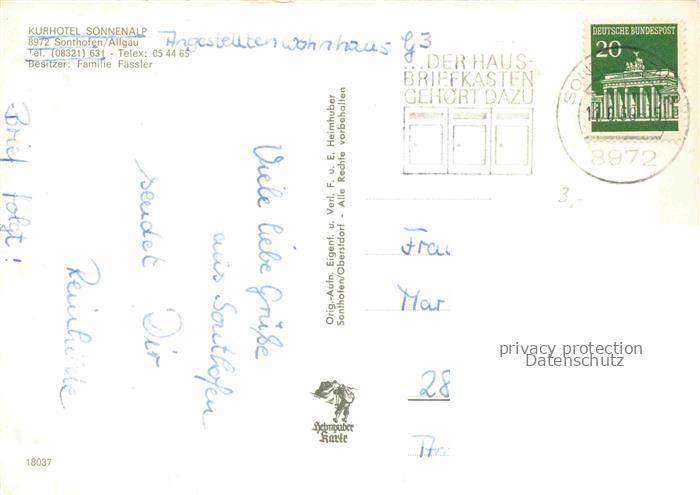 KURHOTEL SONNENALP
8972 Sonthofen/Allgäu
Tel. (08321) 631 - Telex: 05 44 65
Besitzer: Familie Fässler
Angestelltenwohnhaus G3
...DER HAUS-
BRIEFKASTEN
GEHÖRT DAZU
DEUTSCHE BUNDESPOST
20
8972
3,-
Brief folgt!
Viele liebe Grüße
aus Sonthofen
sendet Dir
Reinhilde
Orig.-Aufn. Eigent. u. Verl. F. u. E. Heimhuber
Sonthofen/Oberstdorf - Alle Rechte vorbehalten
Frau
Mar
28
Heimhuber
Karte
privacy protection
Datenschutz
18037